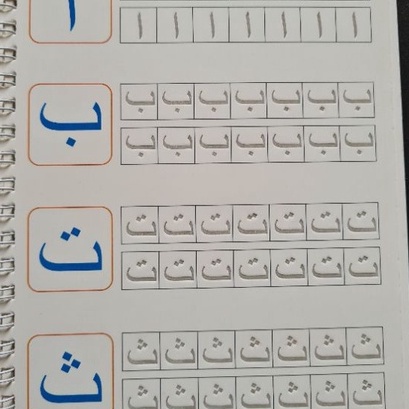 ا
ا ا ا ا ا ا ا
ب
ب ب ب ب ب ب ب
ب ب ب ب ب ب ب
ت
ت ت ت ت ت ت ت
ت ت ت ت ت ت ت
ث
ث ث ث ث ث ث ث
ث ث ث ث ث ث ث